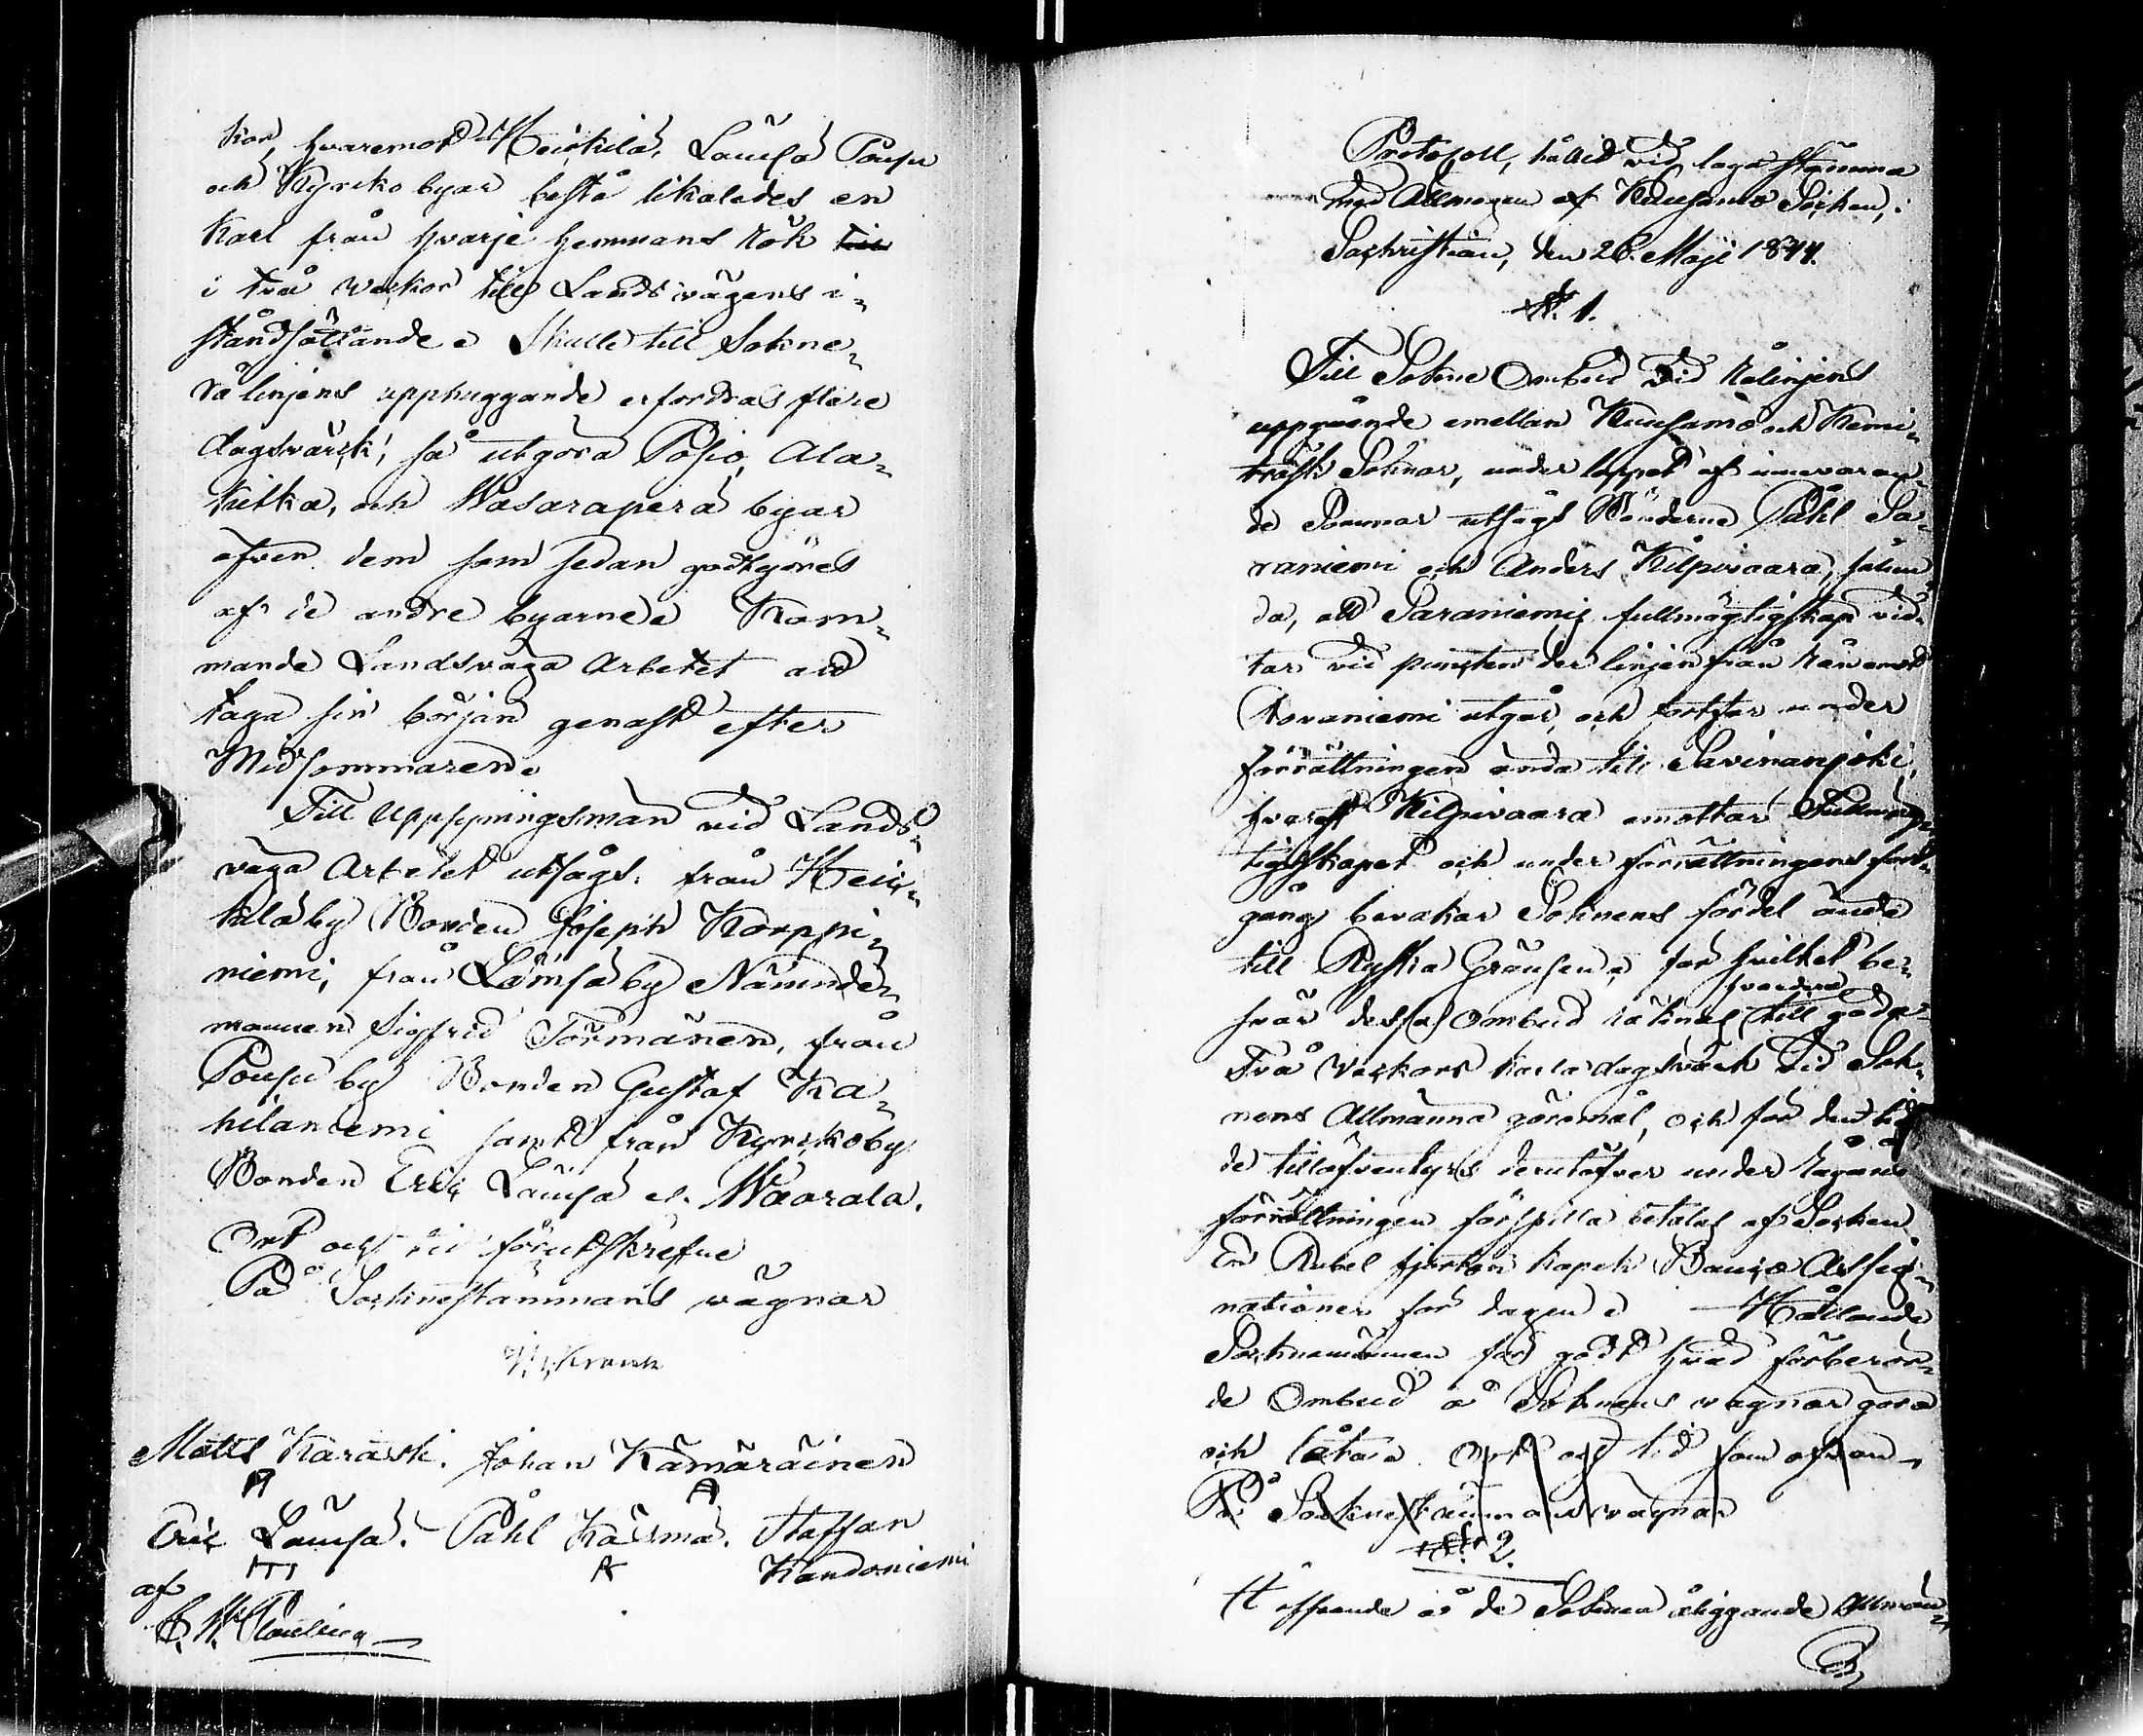 kor, hvaremot Heikkilä, Lämsä Pousu
och Kyrcko byar bestå likaledes en
Karl från hvarje hemmans rök till
i två weckor till Landsvägens i-
ståndsättande. Skulle till Sokne-
rålinjens upphuggande erfordras flere
dagsverck, så utgöra Posio, Ala-
kitka, och Wasaraperä byar
äfven dem som sedan godtgöres
af de andre byarne. Kom-
mande Landsväga Arbetet att
taga sin början genast efter
Midsommaren.
Till Uppsyningsmän vid Lands-
väga Arbetet utsågs: från Heic-
kilä by Bonden Joseph Korppi-
niemi, från Lämsä by Nämnde-
mannen Sigfrid Törmänen, från
Pousu by Bonden Gustaf Ka-
hilaniemi samt från Kyrcko by
Bonden Eric Lämsä el. Waarala.
Ort och tid förutskrefne
På Sockenstämmans wägnar
Matts Karäski. Johan Kämäräinen
Eric Lämsä. Påhl Kärmä. Staffan
Kandoniemi
af
Protocoll, hållit vid laga stämma
med Allmogen af Kuusamo Socken, i
Sachristian, den 26. Maji 1844.
§. 1.
Till Sokne Ombud vid Rålinjens
uppgående emellan Kuusamo och Kemi-
träsk Soknar, under loppet af innevaran-
de Sommar utsågs Bönderne Påhl Sa-
raniemi och Anders Kilpivaara, sålun-
da, att Saraniemis fullmägtigskap vid-
tar vid puncten der linjen från rån emot
Rovaniemi utgår, och fortfar under
förrättningen ända till Savinanjoki,
hvarest Kilpivaara emottar Fullmäg-
tigskapet och under förrättningens fort-
gång bevakar Soknens fördel ända
till Ryska Gränsen, för hvilket be-
hvardera
svär dessa Ombud räknas till godo
Två Weckors karla dagsverck vid Sok-
nens Allmänna göromål, och för den tid
de tilläfventyrs derutöfver under rågångs
förrättningen förspilla betalas af Socken
En Rubel fjorton kopek Banco Assig-
nationer för dagen. Hållande
Socknemännen för godt hvad förberör-
de Ombud å Soknens vägnar göra
och låta. Ort och tid som ofvan,
På Socknestämmans vägnar
§. 2.
Häffande å de Soknen åliggande Allmän-